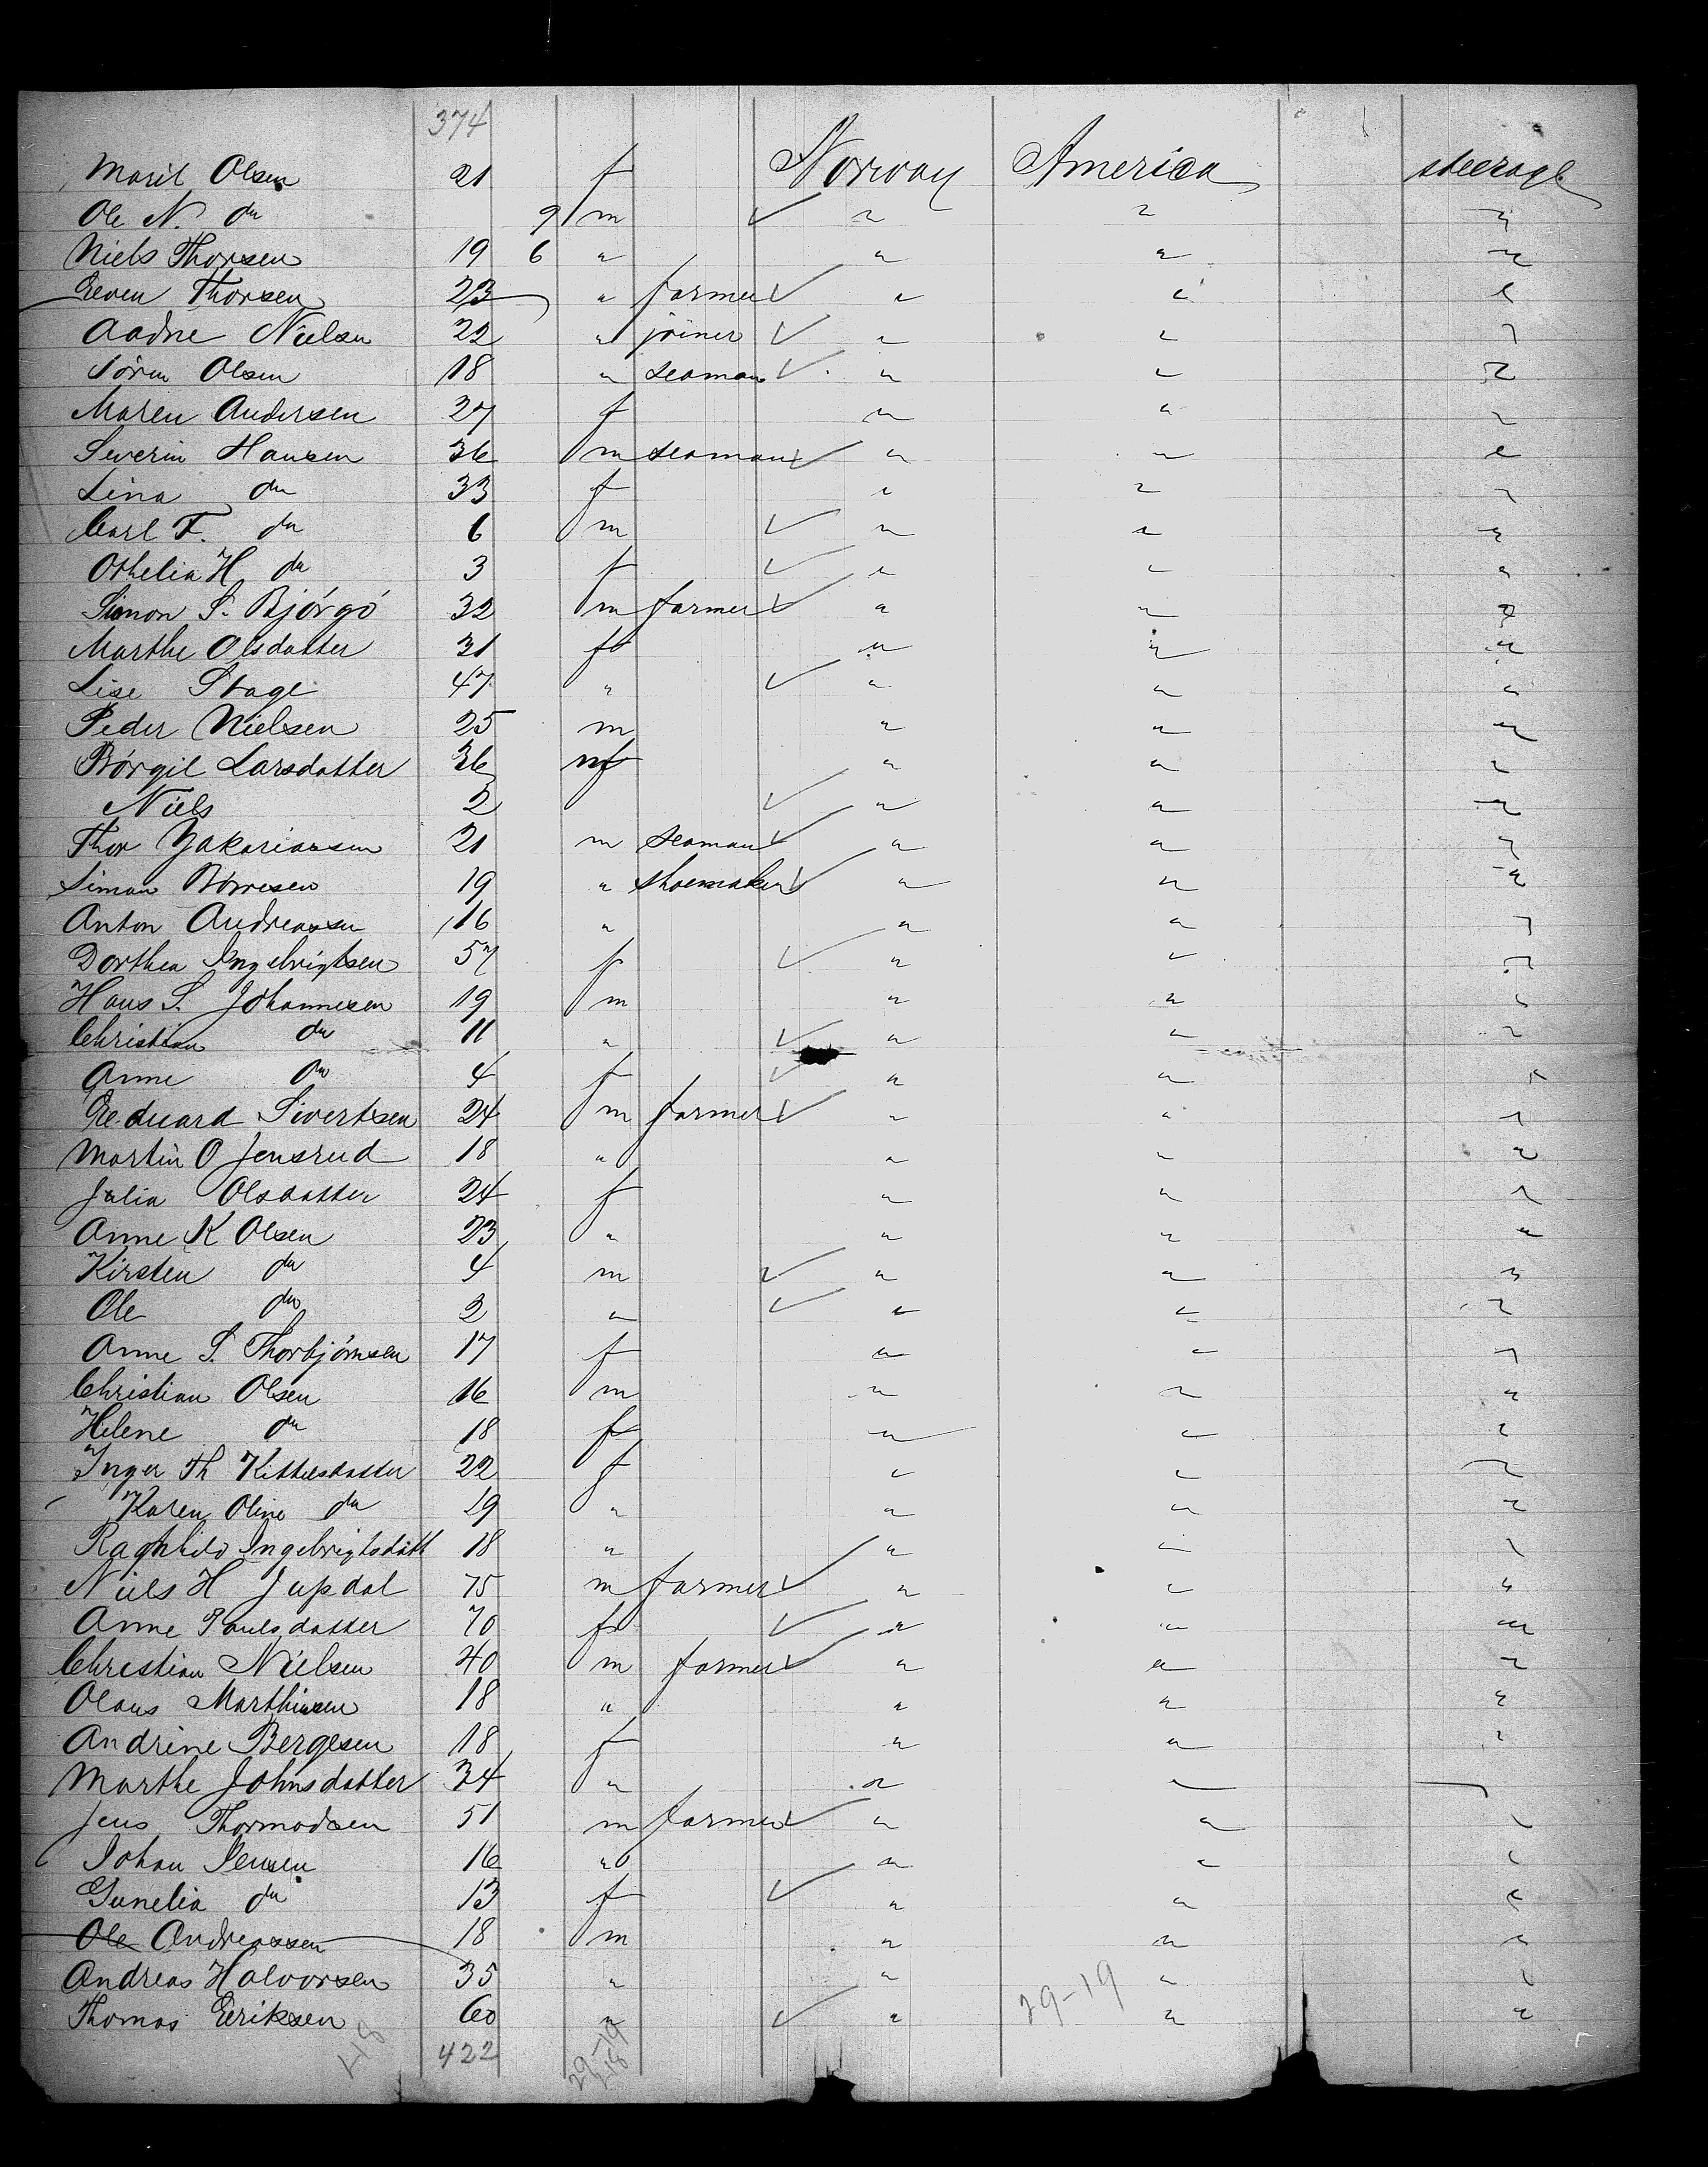 374
Marit Olsen 21 f Norway America steerage
Ole N. do 9 m ✓ " " "
Niels Thorsen 19 6 " " " "
Even Thorsen 23 " farmer ✓ " " "
Aadne Nielsen 22 " joiner ✓ " " "
Søren Olsen 18 " seaman ✓ " " "
Maren Andersen 27 f " " "
Severin Hansen 36 m seaman ✓ " " "
Lina do 33 f " " "
Carl F. do 6 m ✓ " " "
Othelia H do 3 f ✓ " " "
Simon S. Bjørgø 32 m farmer ✓ " " "
Marthe Olsdatter 31 f " " "
Lise Stage 47 " ✓ " " "
Peder Nielsen 25 m " " "
Børgil Larsdatter 36 f " " "
Niels 2 ✓ " " "
Thor Zakariassen 21 m seaman ✓ " " "
Simon Børresen 19 " shoemaker ✓ " " "
Anton Andreassen 16 " " " "
Dorthea Ingebrigtsen 57 f ✓ " " "
Hans S. Johannesen 19 m " " "
Christian do 11 " ✓ " " "
Anne do 4 f ✓ " " "
Eduard Sivertsen 24 m farmer ✓ " " "
Martin O Jensrud 18 " " " "
Julia Olsdatter 24 f " " "
Anne K Olsen 23 " " " "
Kirsten do 4 m ✓ " " "
Ole do 2 " ✓ " " "
Anne S. Thorbjørnsen 17 f " " "
Christian Olsen 16 m " " "
Helene do 18 f " " "
Inger Th Kittelsdatter 22 f " " "
Karen Oline do 19 " " " "
Raghild Ingebrigtsdatt 18 " " " "
Niels H Jupdal 75 m farmer ✓ " " "
Anne Paulsdatter 70 f ✓ " " "
Christian Nielsen 40 m farmer ✓ " " "
Olaus Marthinsen 18 " " " "
Andrine Bergesen 18 f " " "
Marthe Johnsdatter 34 " " " "
Jens Thormodsen 51 m farmer ✓ " " "
Johan Jensen 16 " " " "
Gunelia do 13 f ✓ " " "
Ole Andreassen 18 m " " "
Andreas Halvorsen 35 " " " "
Thomas Eriksen 60 " ✓ " 29-19 " "
48 422 29-19
48